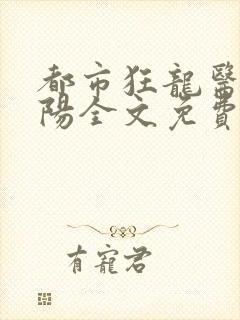 都市狂龍醫
陽全文免費
有寵君